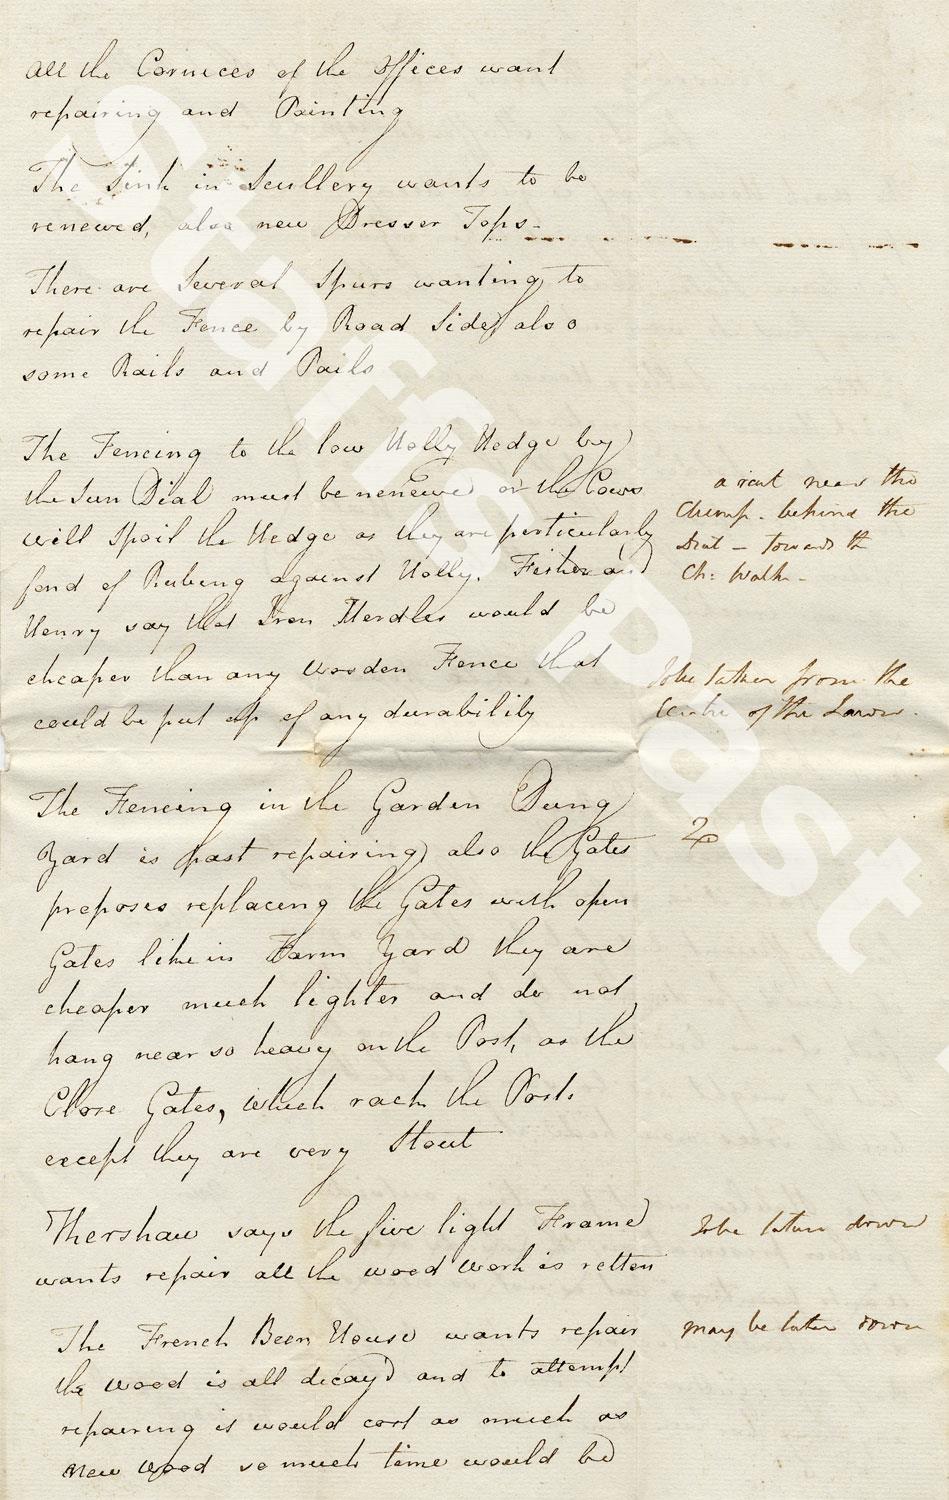 all the Cornices of the Offices want
repairing and Painting
The Sink in Scullery wants to be
renewed, also new Dresser Tops-
There are Several Spurs wanting to
repair the Fence by Road Side also
some Rails and Pails
The Fencing to the low Holly Hedge by
the Sun Dial must be renewed or the Cows
will Spoil the Hedge as they are particularly
fond of Rubing against Holly. Fisher and
Henry say that Iron Herdles would be
cheaper than any Wooden Fence that
could be put up of any durability
near the
Clump. behind the
Dial - towards the
Ch: Walk-
To be taken from the
Centre of the Lawn.
The Fencing in the Garden Dung
Yard is past repairing also the Gates
proposes replaceing the Gates with open
Gates like in Farm Yard they are
cheaper much lighter and do not
hang near so heavy on the Post, as the
Close Gates, which rack the Posts
except they are very Stout
Thershaw says the five light Frame
wants repair all the wood work is rotten
To be taken down
The French Been House wants repair
the wood is all decay'd and to attempt
repairing it would cost as much as
new wood so much time would be
may be taken down
Staffs Past